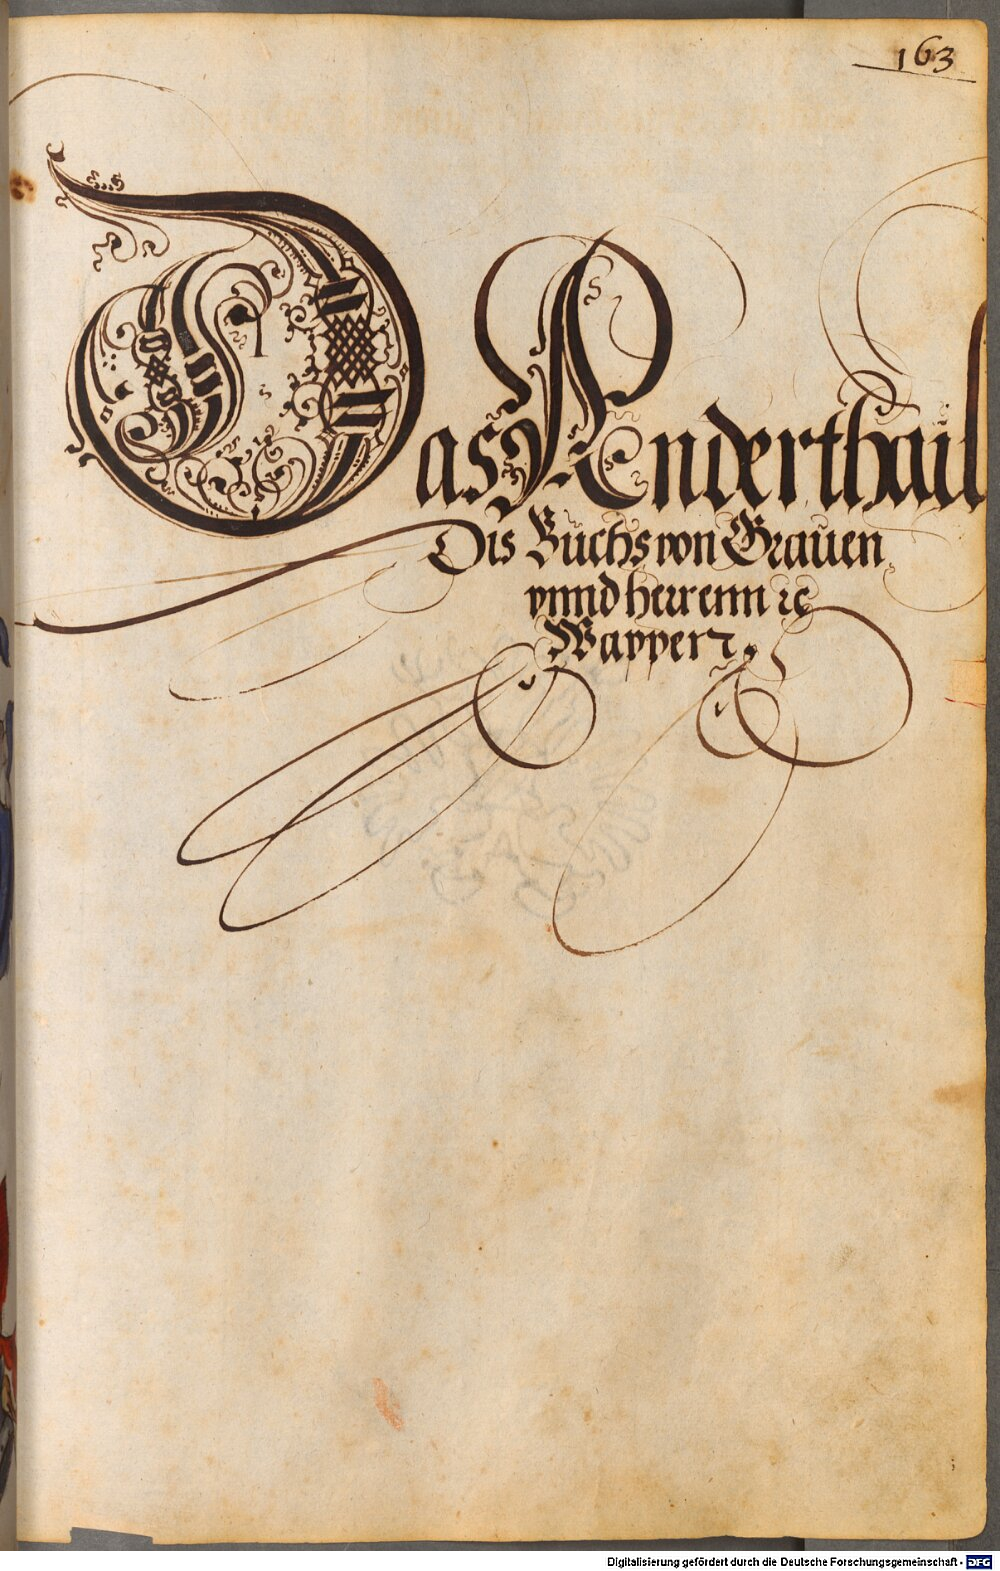 163
Das Ander thail
Dis Buchs von Grauen
vnnd herrenn ꝛc
Wappen ꝛc.
Digitalisierung gefördert durch die Deutsche Forschungsgemeinschaft - DFG